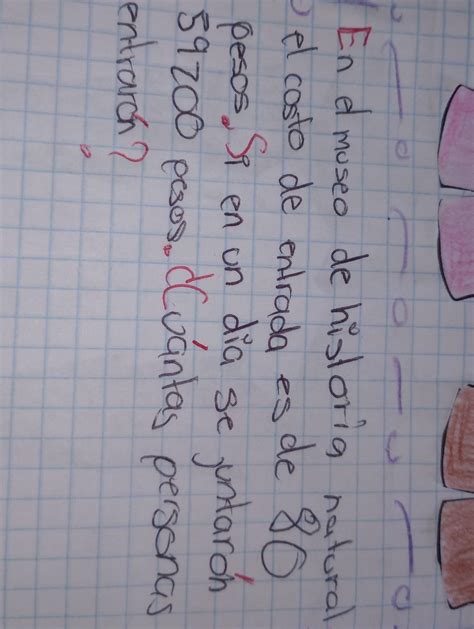 En el museo de historia natural
el costo de entrada es de 80
pesos. Si en un día se juntarón
59200 pesos. ¿Cuántas personas
entrarón?